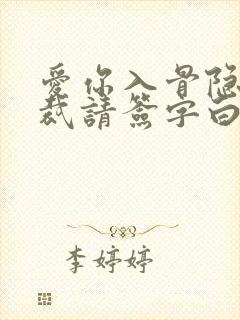 愛你入骨隐
裁請簽字曰
李婷婷